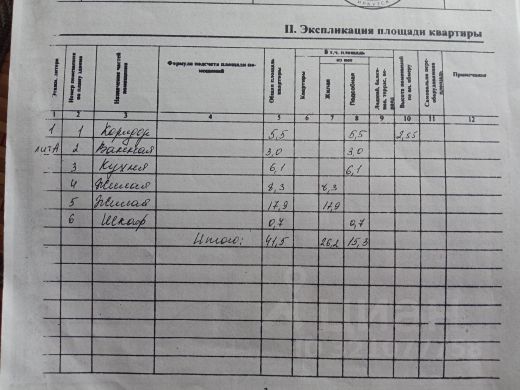 ИРКУТСК
II. Экспликация площади квартиры
Этаж, литера
Номер помещения по плану здания
Назначение частей помещения
Формула подсчета площади помещений
Общая площадь квартиры
В т.ч. площадь
Квартиры
из нее
Жилая
Подсобная
Высота помещений по вн. обмеру
Самовольно переоборудованная площадь
Примечание
1 2 3 4 5 6 7 8 9 10 11 12
1 1 Коридор 5,5 5,5 2,55
лит А 2 Ванная 3,0 3,0
3 Кухня 6,1 6,1
4 Жилая 8,3 8,3
5 Жилая 17,9 17,9
6 Шкаф 0,7 0,7
Итого: 41,5 26,2 15,3